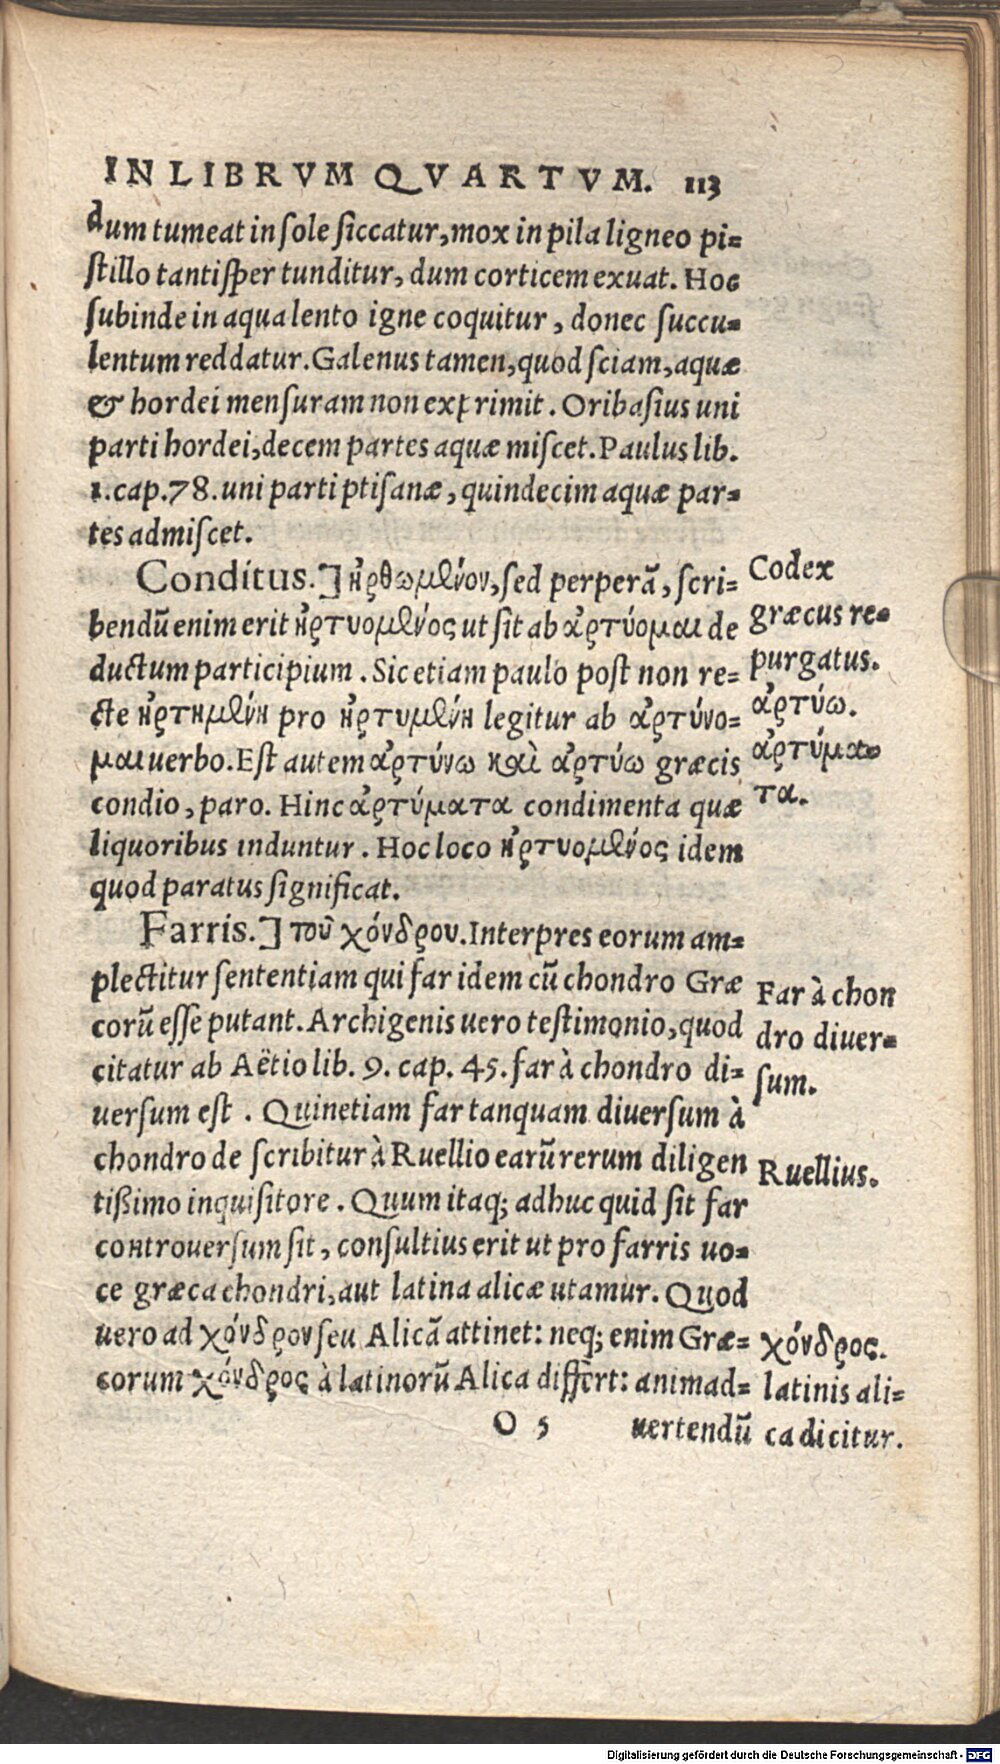 IN LIBRVM QVARTVM. 113
dum tumeat in ſole ſiccatur, mox in pila ligneo pi=
ſtillo tantiſper tunditur, dum corticem exuat. Hoc
ſubinde in aqua lento igne coquitur, donec ſuccu=
lentum reddatur. Galenus tamen, quod ſciam, aquæ
& hordei menſuram non exprimit. Oribaſius uni
parti hordei, decem partes aquæ miſcet. Paulus lib.
1. cap. 78. uni parti ptiſanæ, quindecim aquæ par=
tes admiſcet.
Conditus.] ἠρθωμένον, ſed perperã, ſcri=
bendũ enim erit ἠρτυομένος ut ſit ab ἀρτύομαι de
ductum participium. Sic etiam paulo poſt non re=
cte ἠρτημένη pro ἠρτυμένη legitur ab ἀρτύνο=
μαι uerbo. Eſt autem ἀρτύνω καὶ ἀρτύω græcis
condio, paro. Hinc ἀρτύματα condimenta quæ
liquoribus induntur. Hoc loco ἠρτυομένος idem
quod paratus ſignificat.
Codex
græcus re=
purgatus.
ἀρτύω.
ἀρτύμα=
τα.
Farris.] τοῦ χόνδρου. Interpres eorum am=
plectitur ſententiam qui far idem cũ chondro Græ
corũ eſſe putant. Archigenis uero teſtimonio, quod
citatur ab Aëtio lib. 9. cap. 45. far à chondro di=
uerſum eſt. Quinetiam far tanquam diuerſum à
chondro de ſcribitur à Ruellio earũ rerum diligen
tißimo inquiſitore. Quum itaq; adhuc quid ſit far
controuerſum ſit, conſultius erit ut pro farris uo=
ce græca chondri, aut latina alicæ utamur. Quod
uero ad χόνδρον ſeu Alicã attinet: neq; enim Græ=
corum χόνδρος à latinorũ Alica differt: animad=
O 5 uertendũ
Far à chon
dro diuer=
ſum.
Ruellius.
χόνδρος.
latinis ali=
ca dicitur.
Digitalisierung gefördert durch die Deutsche Forschungsgemeinschaft - DFG